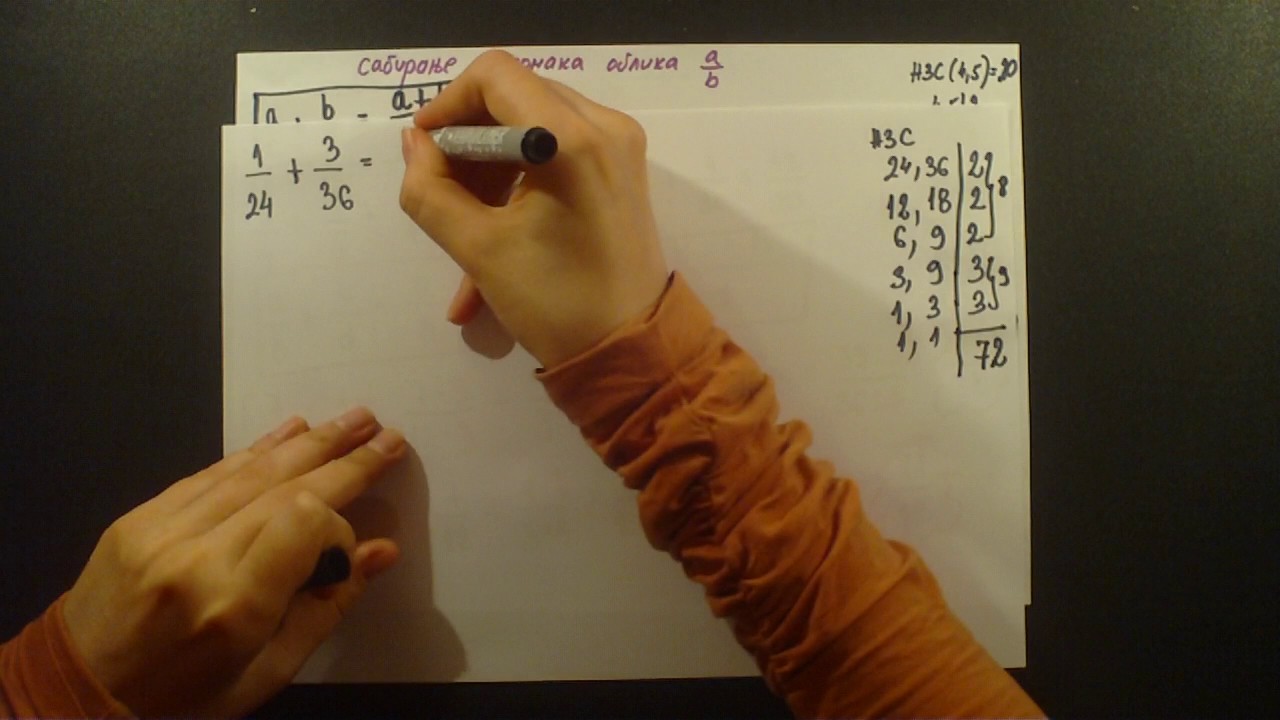 Сабирање облика a/b
НЗС(4,5)=20
a b = a+
1/24 + 3/36 =
НЗС
24, 36 | 2
12, 18 | 2 8
6, 9 | 2
3, 9 | 3 9
1, 3 | 3
1, 1 | 72